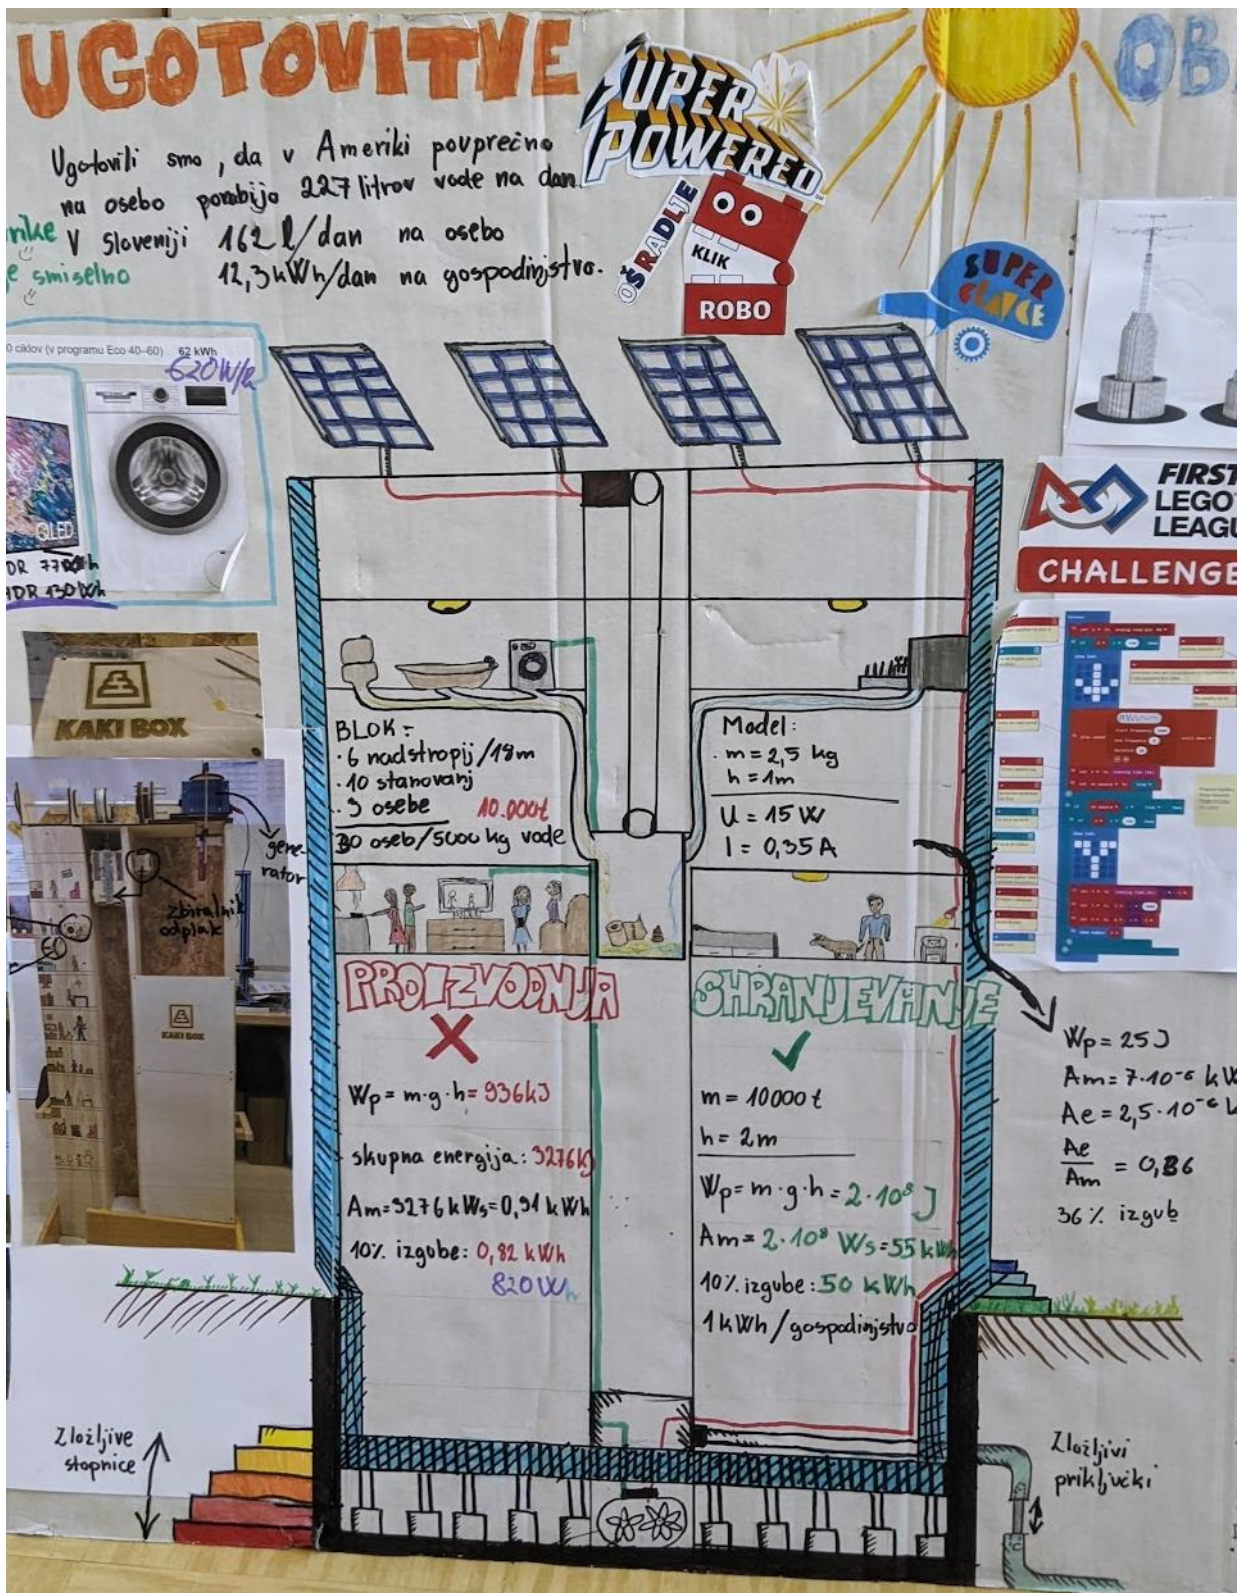 UGOTOVITVE
OB
SUPER
POWERED
Ugotovili smo, da v Ameriki povprečno
na osebo porabijo 227 litrov vode na dan.
V Sloveniji 162 l/dan na osebo
12,3 kWh/dan na gospodinjstvo.
smiselno
OŠ RADLJE
KLIK
ROBO
SUPER
GLAVCE
0 ciklov (v programu Eco 40–60) 62 kWh
620W/h
QLED
HDR 130Wh
FIRST
LEGO
LEAGU
CHALLENGE
KAKI BOX
gene-
rator
Zbiralnik
odplak
KAKI BOX
BLOK:
· 6 nadstropij/18m
· 10 stanovanj
· 3 osebe 10.000t
30 oseb/5000 kg vode
Model:
· m = 2,5 kg
h = 1m
U = 15 W
I = 0,35 A
PROIZVODNJA
Wp = m·g·h = 936kJ
skupna energija: 3276kJ
Am = 3276 kWs = 0,91 kWh
10% izgube: 0,82 kWh
820Wh
SHRANJEVANJE
m = 10000 t
h = 2m
Wp = m·g·h = 2·10⁸ J
Am = 2·10⁸ Ws = 55 kWh
10% izgube: 50 kWh
1 kWh/gospodinjstvo
Wp = 25 J
Am = 7·10⁻⁶ kW
Ae = 2,5·10⁻⁶ k
Ae
Am = 0,36
36% izgub
Zložljive
stopnice
Zložljivi
priključki